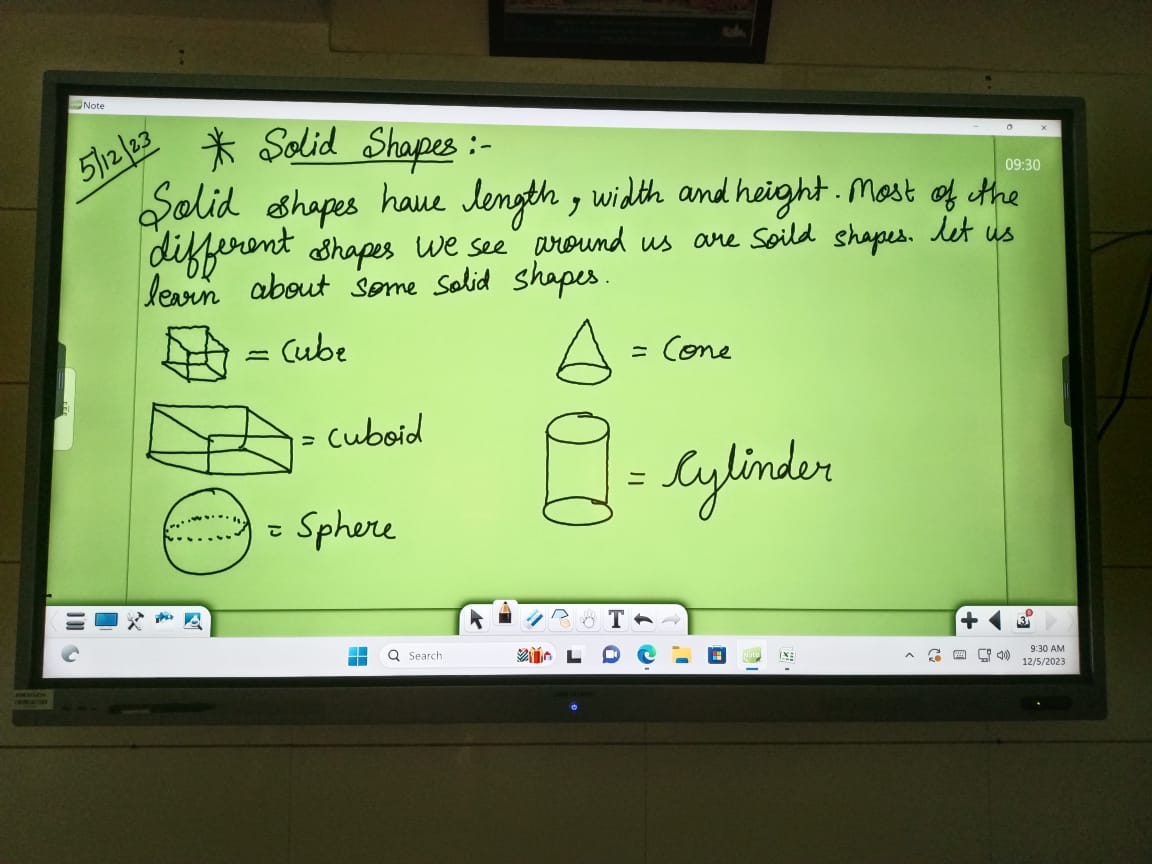 Note
5/12/23
* Solid Shapes :-
09:30
Solid shapes have length, width and height. Most of the
different shapes we see around us are Soild shapes. let us
learn about some solid shapes.
= Cube
= Cone
= Cuboid
= Cylinder
= Sphere
T
3
Search
Note
9:30 AM
12/5/2023